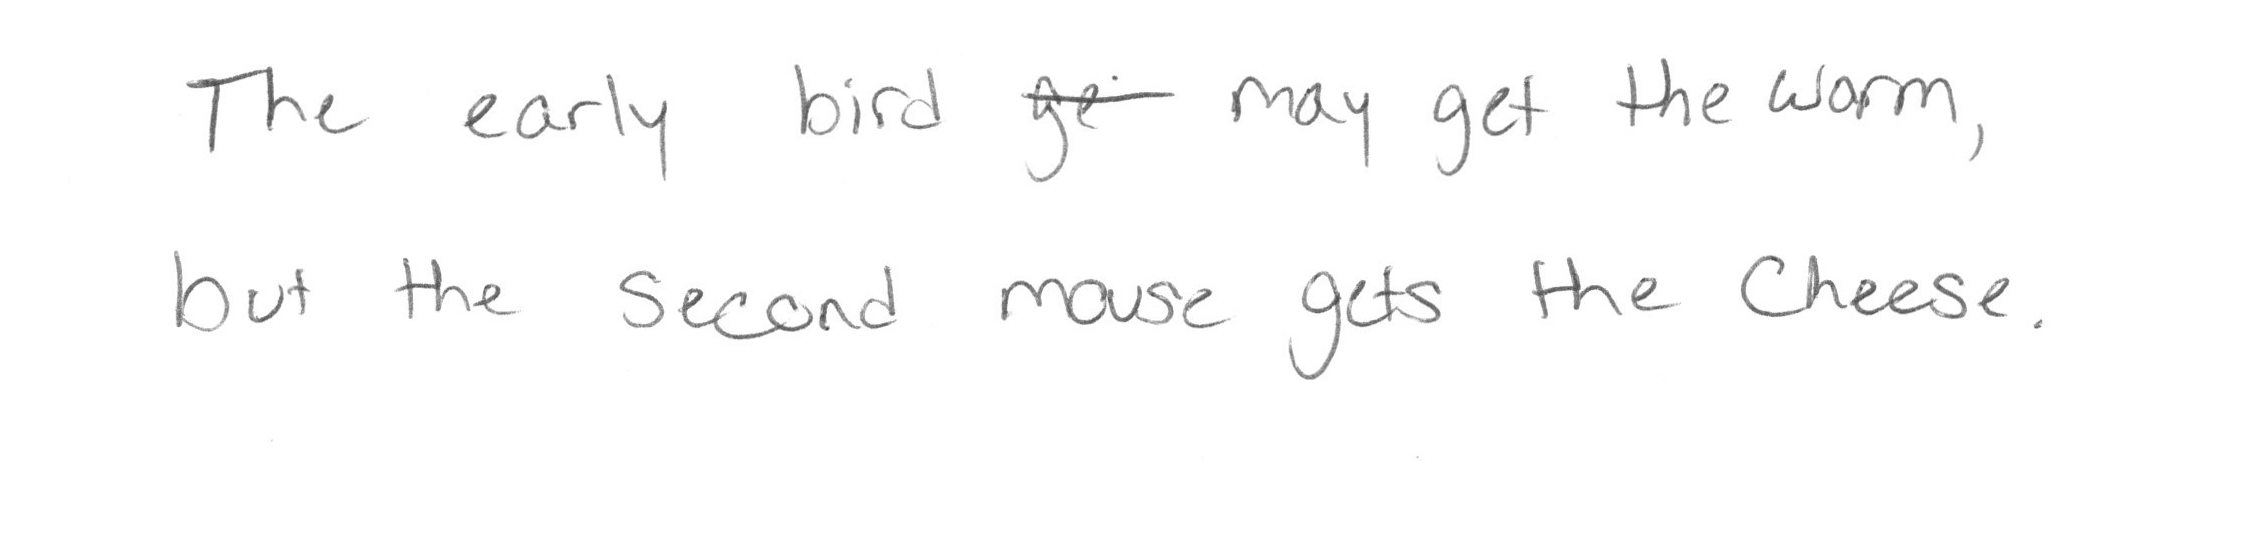 The early bird ge may get the worm,
but the second mouse gets the Cheese.